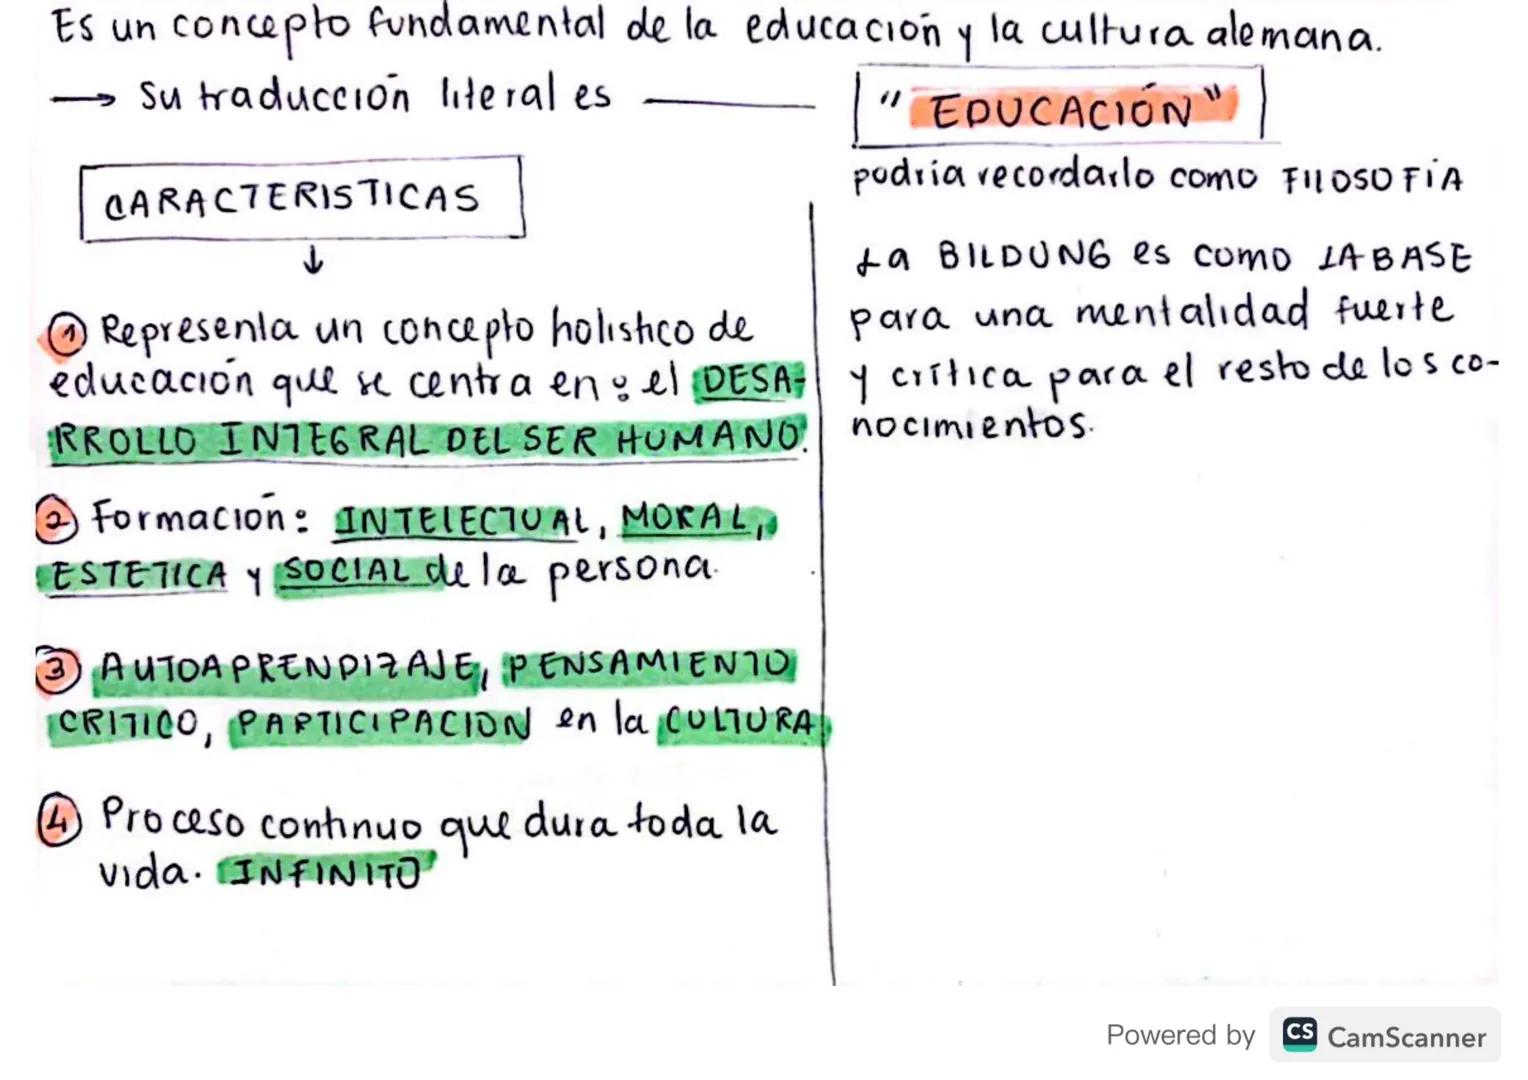 Es un concepto fundamental de la educación y la cultura alemana.
→ Su traducción literal es —— "EDUCACIÓN"
podría recordarlo como FILOSOFÍA
CARACTERISTICAS
↓
① Representa un concepto holistico de
educación que se centra en: el DESA-
RROLLO INTEGRAL DEL SER HUMANO.
② Formación: INTELECTUAL, MORAL,
ESTETICA y SOCIAL de la persona.
③ AUTOAPRENDIZAJE, PENSAMIENTO
CRITICO, PARTICIPACION en la CULTURA
④ Proceso continuo que dura toda la
vida. INFINITO
La BILDUNG es como LA BASE
para una mentalidad fuerte
y crítica para el resto de los co-
nocimientos.
Powered by CS CamScanner